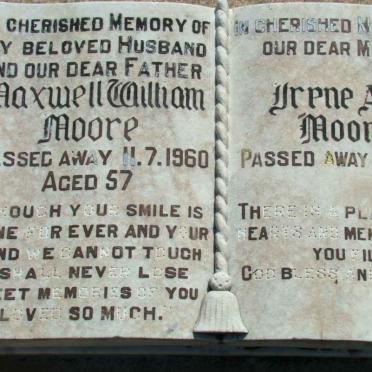 CHERISHED MEMORY OF
BELOVED HUSBAND
AND OUR DEAR FATHER
Maxwell William
Moore
PASSED AWAY 11.7.1960
AGED 57
THOUGH YOUR SMILE IS
GONE FOREVER AND YOUR
AND WE CANNOT TOUCH
SHALL NEVER LOSE
SWEET MEMORIES OF YOU
LOVED SO MUCH.
IN CHERISHED
OUR DEAR
Irene
Moore
PASSED AWAY
THERE IS A
HEARTS AND
YOU
GOD BLESS